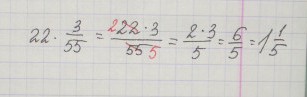 22 · 3/55 = 2 22 · 3 / 55 5 = 2 · 3 / 5 = 6/5 = 1 1/5